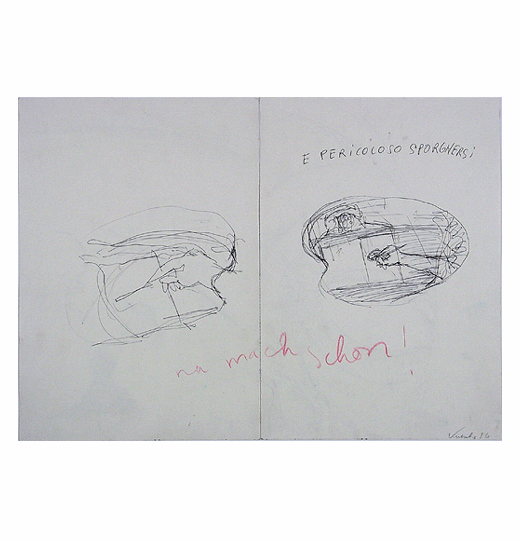 E PERICOLOSO SPORGNERSI
na mach schon!